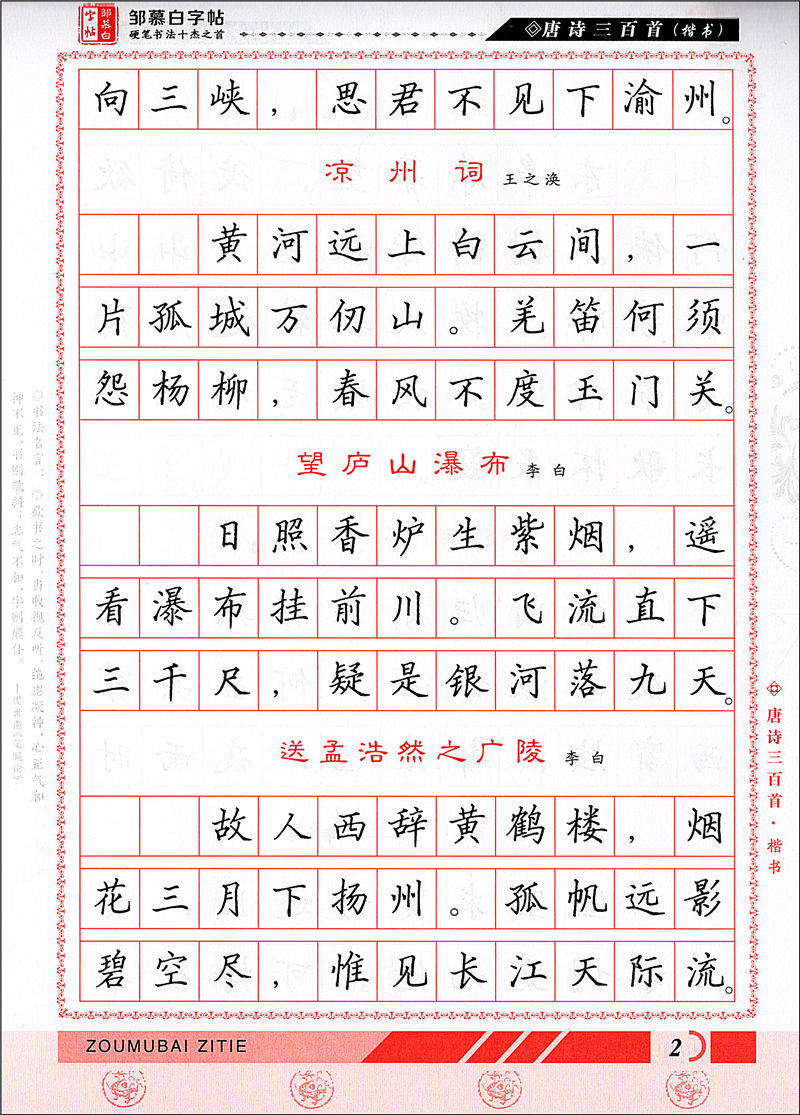 邹慕白字帖
邹慕白字帖
硬笔书法十杰之首
唐诗三百首(楷书)
向三峡，思君不见下渝州。
凉州词 王之涣
黄河远上白云间，一
片孤城万仞山。羌笛何须
怨杨柳，春风不度玉门关。
望庐山瀑布 李白
日照香炉生紫烟，遥
看瀑布挂前川。飞流直下
三千尺，疑是银河落九天。
送孟浩然之广陵 李白
故人西辞黄鹤楼，烟
花三月下扬州。孤帆远影
碧空尽，惟见长江天际流。
◎书法名言：◎欲书之时，当收视反听，绝虑凝神，心正气和
神不正，书则欹斜；志气不和，字则颠仆。
唐诗三百首·楷书
ZOUMUBAI ZITIE
2